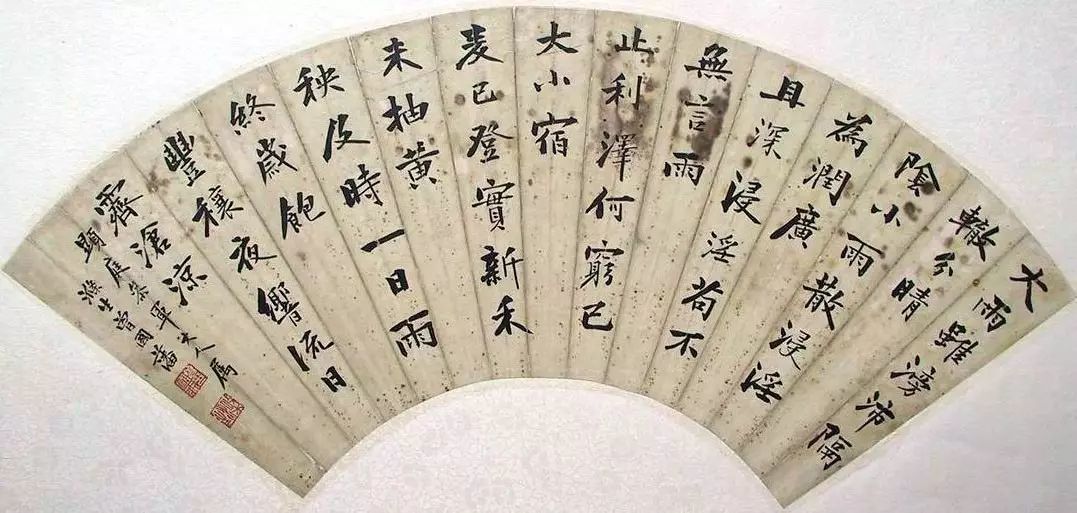 大雨雖滂沛隔
轍分晴
陰小雨散浸淫
為潤廣
且深浸淫苟不
無言雨
止利澤何窮已
大小宿
麥已登實新禾
未抽黃
秧及時一日雨
終歲飽
豐穰夜響流日
霽滄涼
顯庭參軍大人屬
滌生曾國藩